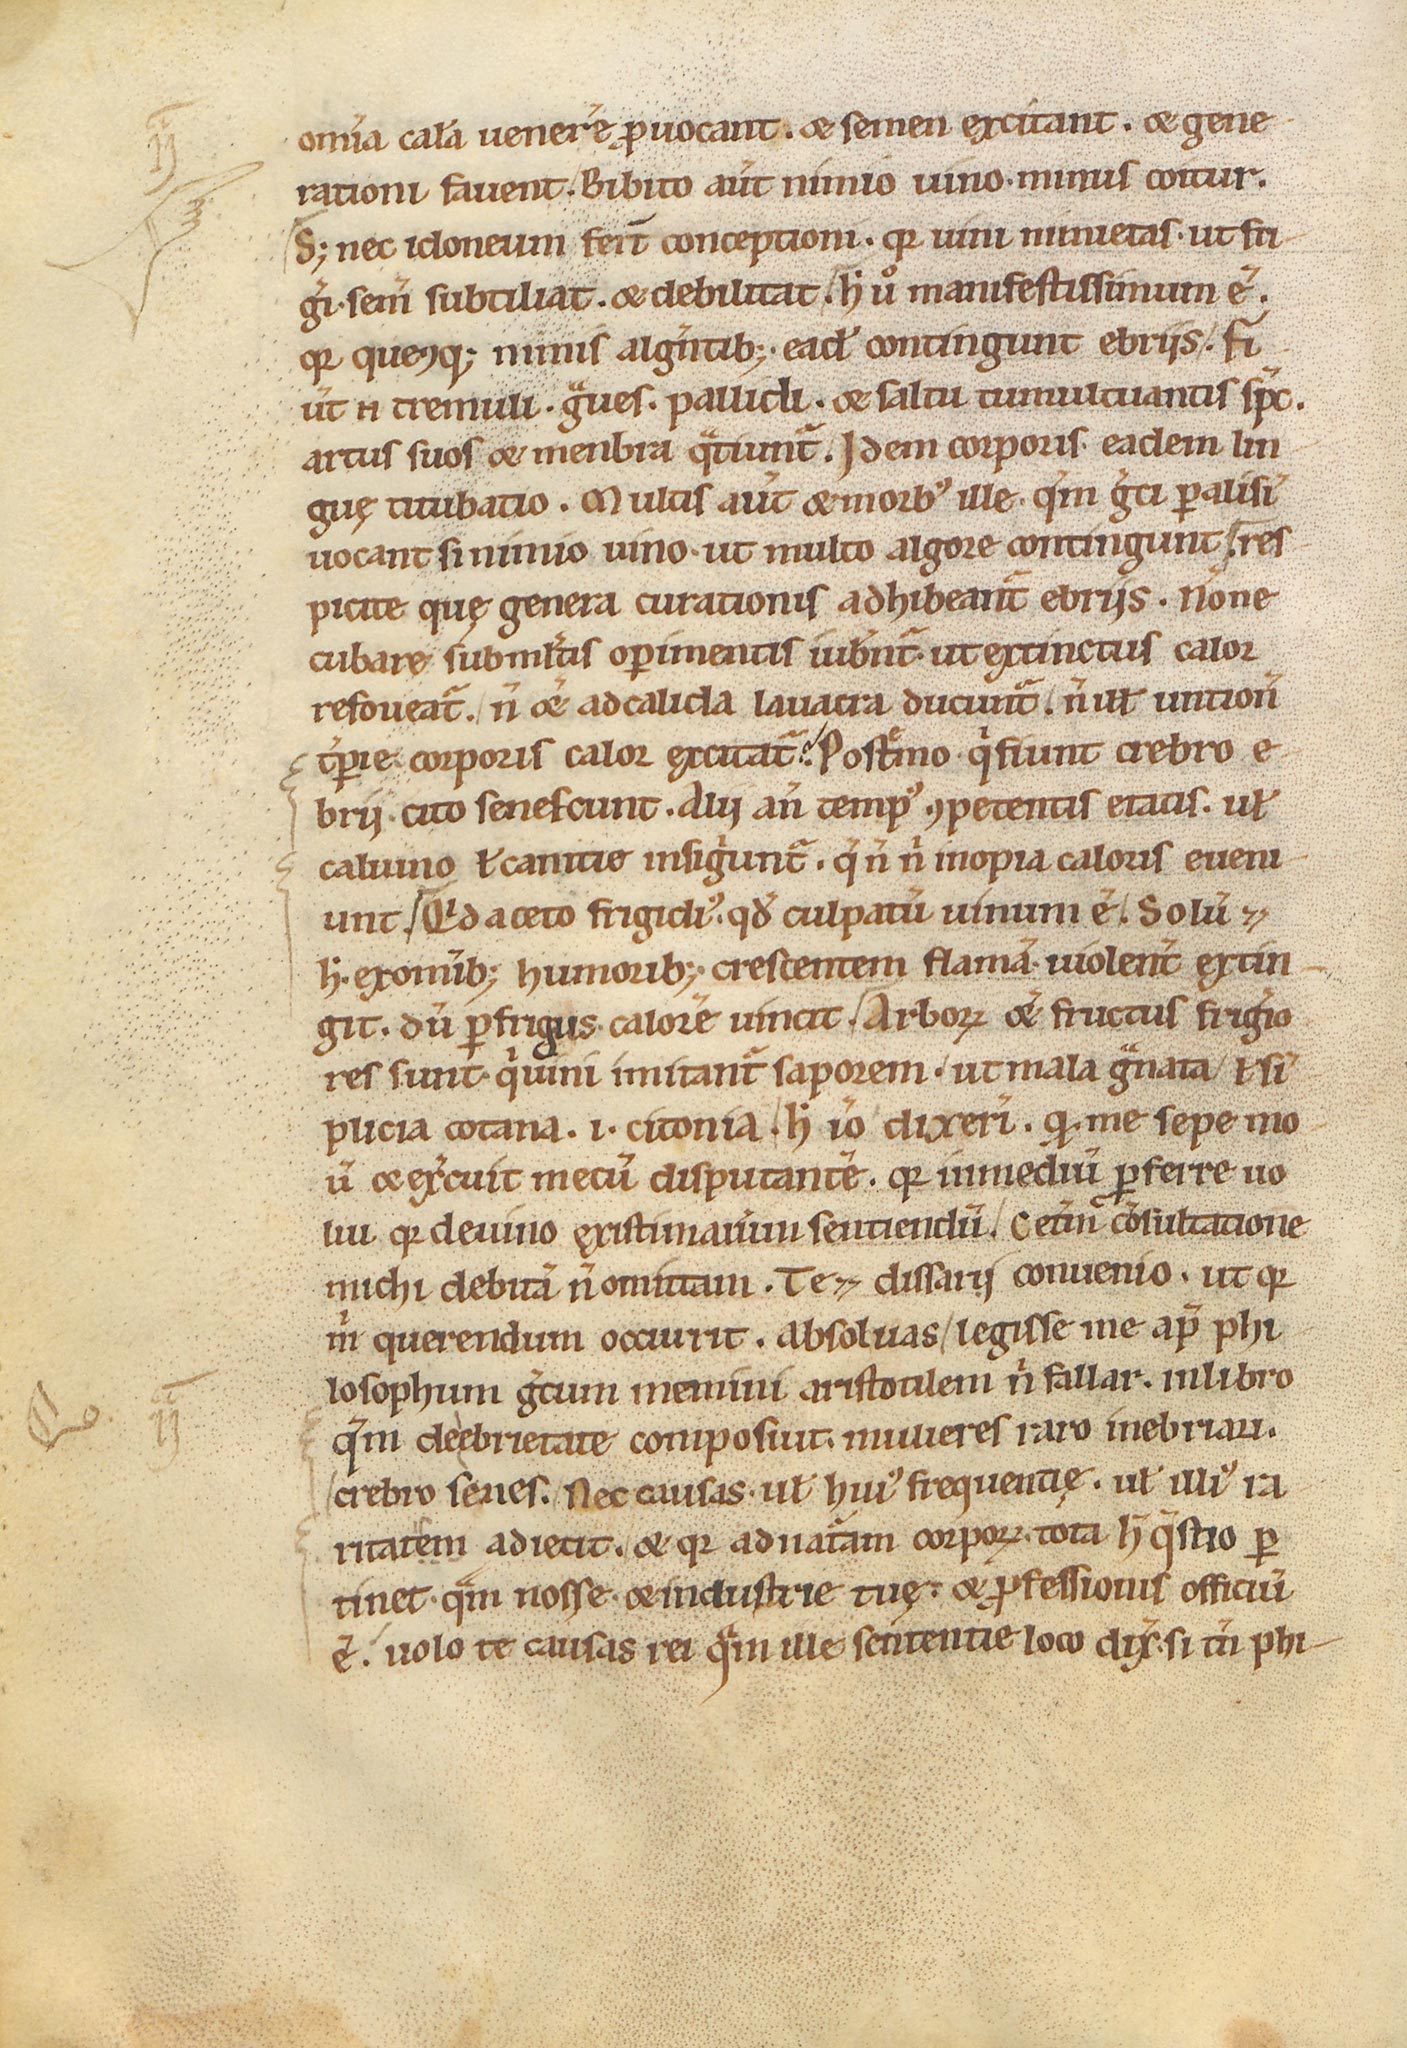 om̅ia cal̅a venerē ꝓuocant. & semen excitant. & gene
rationi fauent. Bibito aut̅ nimio uino. minus coitur.
S; nec idoneum feri̅ conceptioni. qr uini nimietas. ut fri
gi̅. sem̅ subtiliat. & debilitat. h̅ ů manifestissimum e̅.
qr queꝗ; nimis alge̅tib;. ead̅ contingunt ebriis. fi
u̅t n̅ tremuli. gͣues. pallidi. & saltu tumultuantis spc̅.
artus suos & menbra qͣtiunt̅. Idem corporis eadem lin
guę titubatio. Multis aut̅ & morbꝰ ille. qe̅m gͥci ꝑalisi̅
uocant si nimio uino. ut multo algore contingunt. res
picite quę genera curationis adhibeant̅ ebriis. None
cubare sub ml̅tis oꝑimentis iube̅nt̅. ut extinctus calor
refoueat̅. n̅ & e̅ ad calida lauacra ducunt̅. n̅ ill̅ untion̅
te̅ꝑie corporis calor excitat̅. Post̅mo qͥ fiunt crebro e
brii. cito senescunt. Alii an̅ tempꝰ ꝯpetentis etatis. ul̅
caluino ł canitie insigͥunt̅. qͥ n̅ n̅ inopia caloris eueni
unt. Qͥd aceto frigidiꝰ. qd̅ culpatu̅ uinum e̅. Solu̅
h̅. ex omi̅b; humorib;. crescentem flama̅. uiolent̅ extin
git. du̅ ꝑ frigus. calore̅ uincit. Arboꝝ & e̅ fructus frigͥdio
res sunt. qͥ uini imitant̅ saporem. ut mala gͣnata ł si̅
plicia cotana. i. citonia. h̅ io̅ dixeri̅. qͥ me sepe mo
u̅ & exͤrcuit mecu̅ disputante̅. qr in mediu̅ ꝓferre uo
lui qr de uino ęxistimari̅m sentiendu̅. Cetu̅m co̅sultatione
michi debita̅ n̅ omittam. Te dissarii conuenio. ut qr
m̅ querendum occurrit. absoluas legisse me ap̅ phi
losophum gͥcum memini aristotilem n̅ fallar. in libro
qe̅m de ebrietate composuit. mulieres raro inebriari.
crebro senes. Nec causas. ul̅ huiꝰ frequentię. ul̅ illiꝰ ra
ritatem adiecit. & qr ad nat̅am corpoꝝ. tota h̅ qͤstio ꝑ
tinet. qͣm nosse. & industrie tuę. & ꝓfessionis officiu̅
e̅. uolo te causas rei qͣm ille sententie loco dix̅. si tn̅ phi